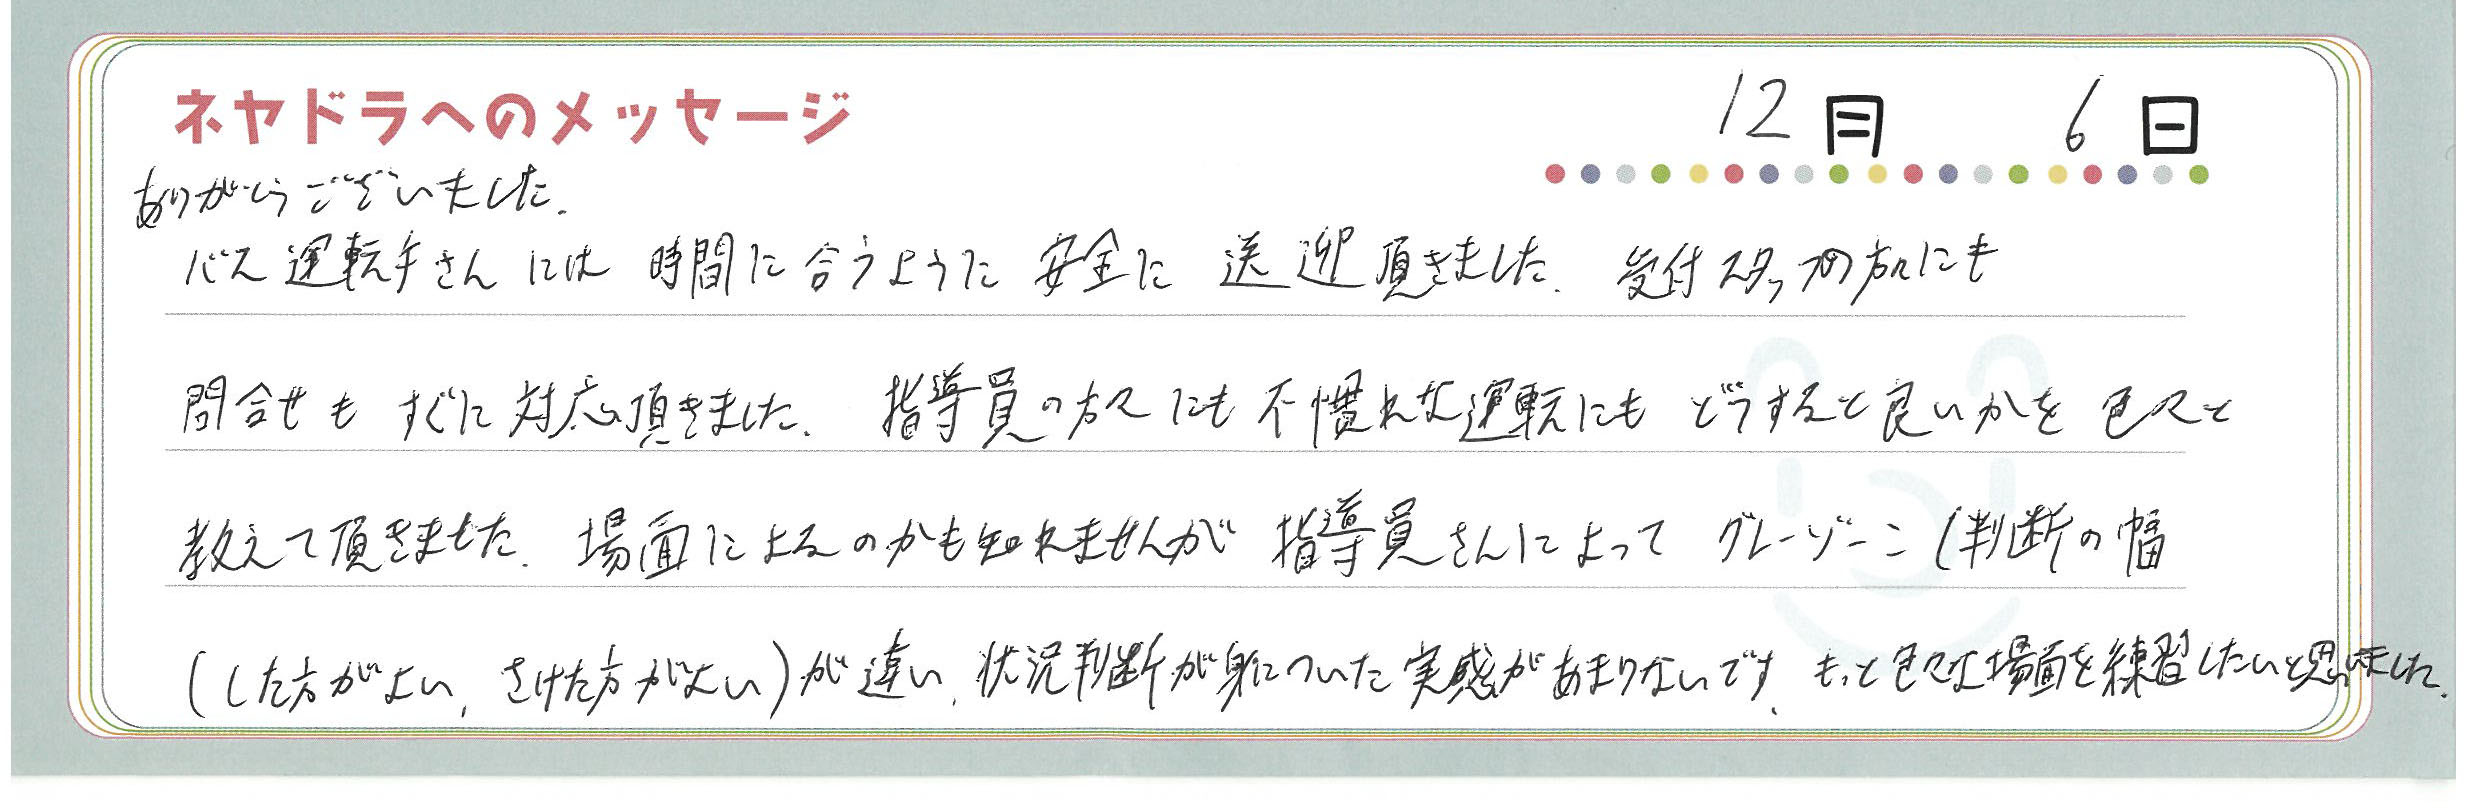 ネヤドラへのメッセージ 12月 6日
ありがとうございました。
バス運転手さんには 時間に合うように 安全に 送迎頂きました。受付スタッフの方々にも
問合せも すぐに対応頂きました。指導員の方々にも不慣れな運転にも どうすると良いかを 色々と
教えて頂きました。場面によるのかも知れませんが 指導員さんによって グレーゾーン(判断の幅
(した方がよい、さけた方がよい)が違い、状況判断が身についた実感があまりないです。もっと色々な場面を練習したいと思いました。